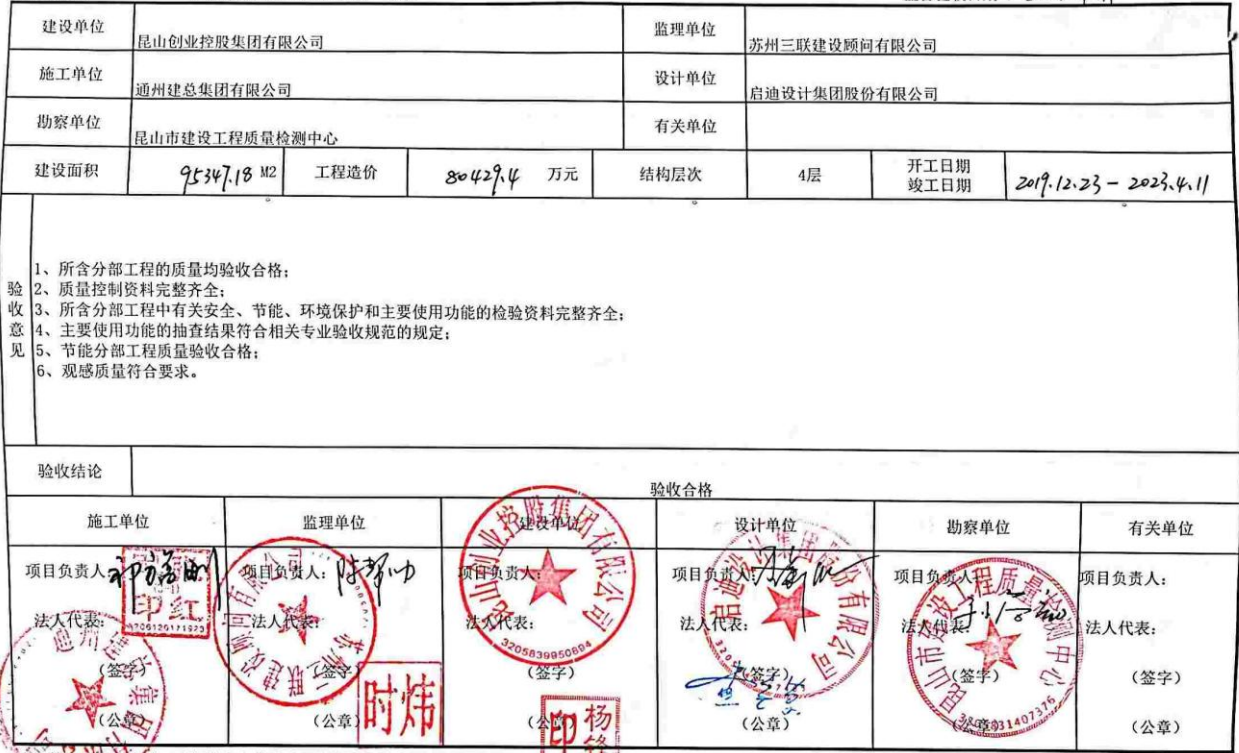 建设单位 昆山创业控股集团有限公司 监理单位 苏州三联建设顾问有限公司
施工单位 通州建总集团有限公司 设计单位 启迪设计集团股份有限公司
勘察单位 昆山市建设工程质量检测中心 有关单位
建设面积 95347.18 M2 工程造价 80429.4 万元 结构层次 4层 开工日期 竣工日期 2019.12.23 - 2023.4.11
验收意见
1、所含分部工程的质量均验收合格;
2、质量控制资料完整齐全;
3、所含分部工程中有关安全、节能、环境保护和主要使用功能的检验资料完整齐全;
4、主要使用功能的抽查结果符合相关专业验收规范的规定;
5、节能分部工程质量验收合格;
6、观感质量符合要求。
验收结论 验收合格
施工单位 监理单位 建设单位 设计单位 勘察单位 有关单位
项目负责人: 项目负责人: 项目负责人: 项目负责人: 项目负责人: 项目负责人:
法人代表: 法人代表: 法人代表: 法人代表: 法人代表: 法人代表:
(签字) (签字) (签字) (签字) (签字) (签字)
(公章) (公章) (公章) (公章) (公章) (公章)
印红
苏州三联建设顾问有限公司
时炜
昆山创业控股集团有限公司
3205839950894
杨
印
启迪设计集团股份有限公司
昆山市建设工程质量检测中心